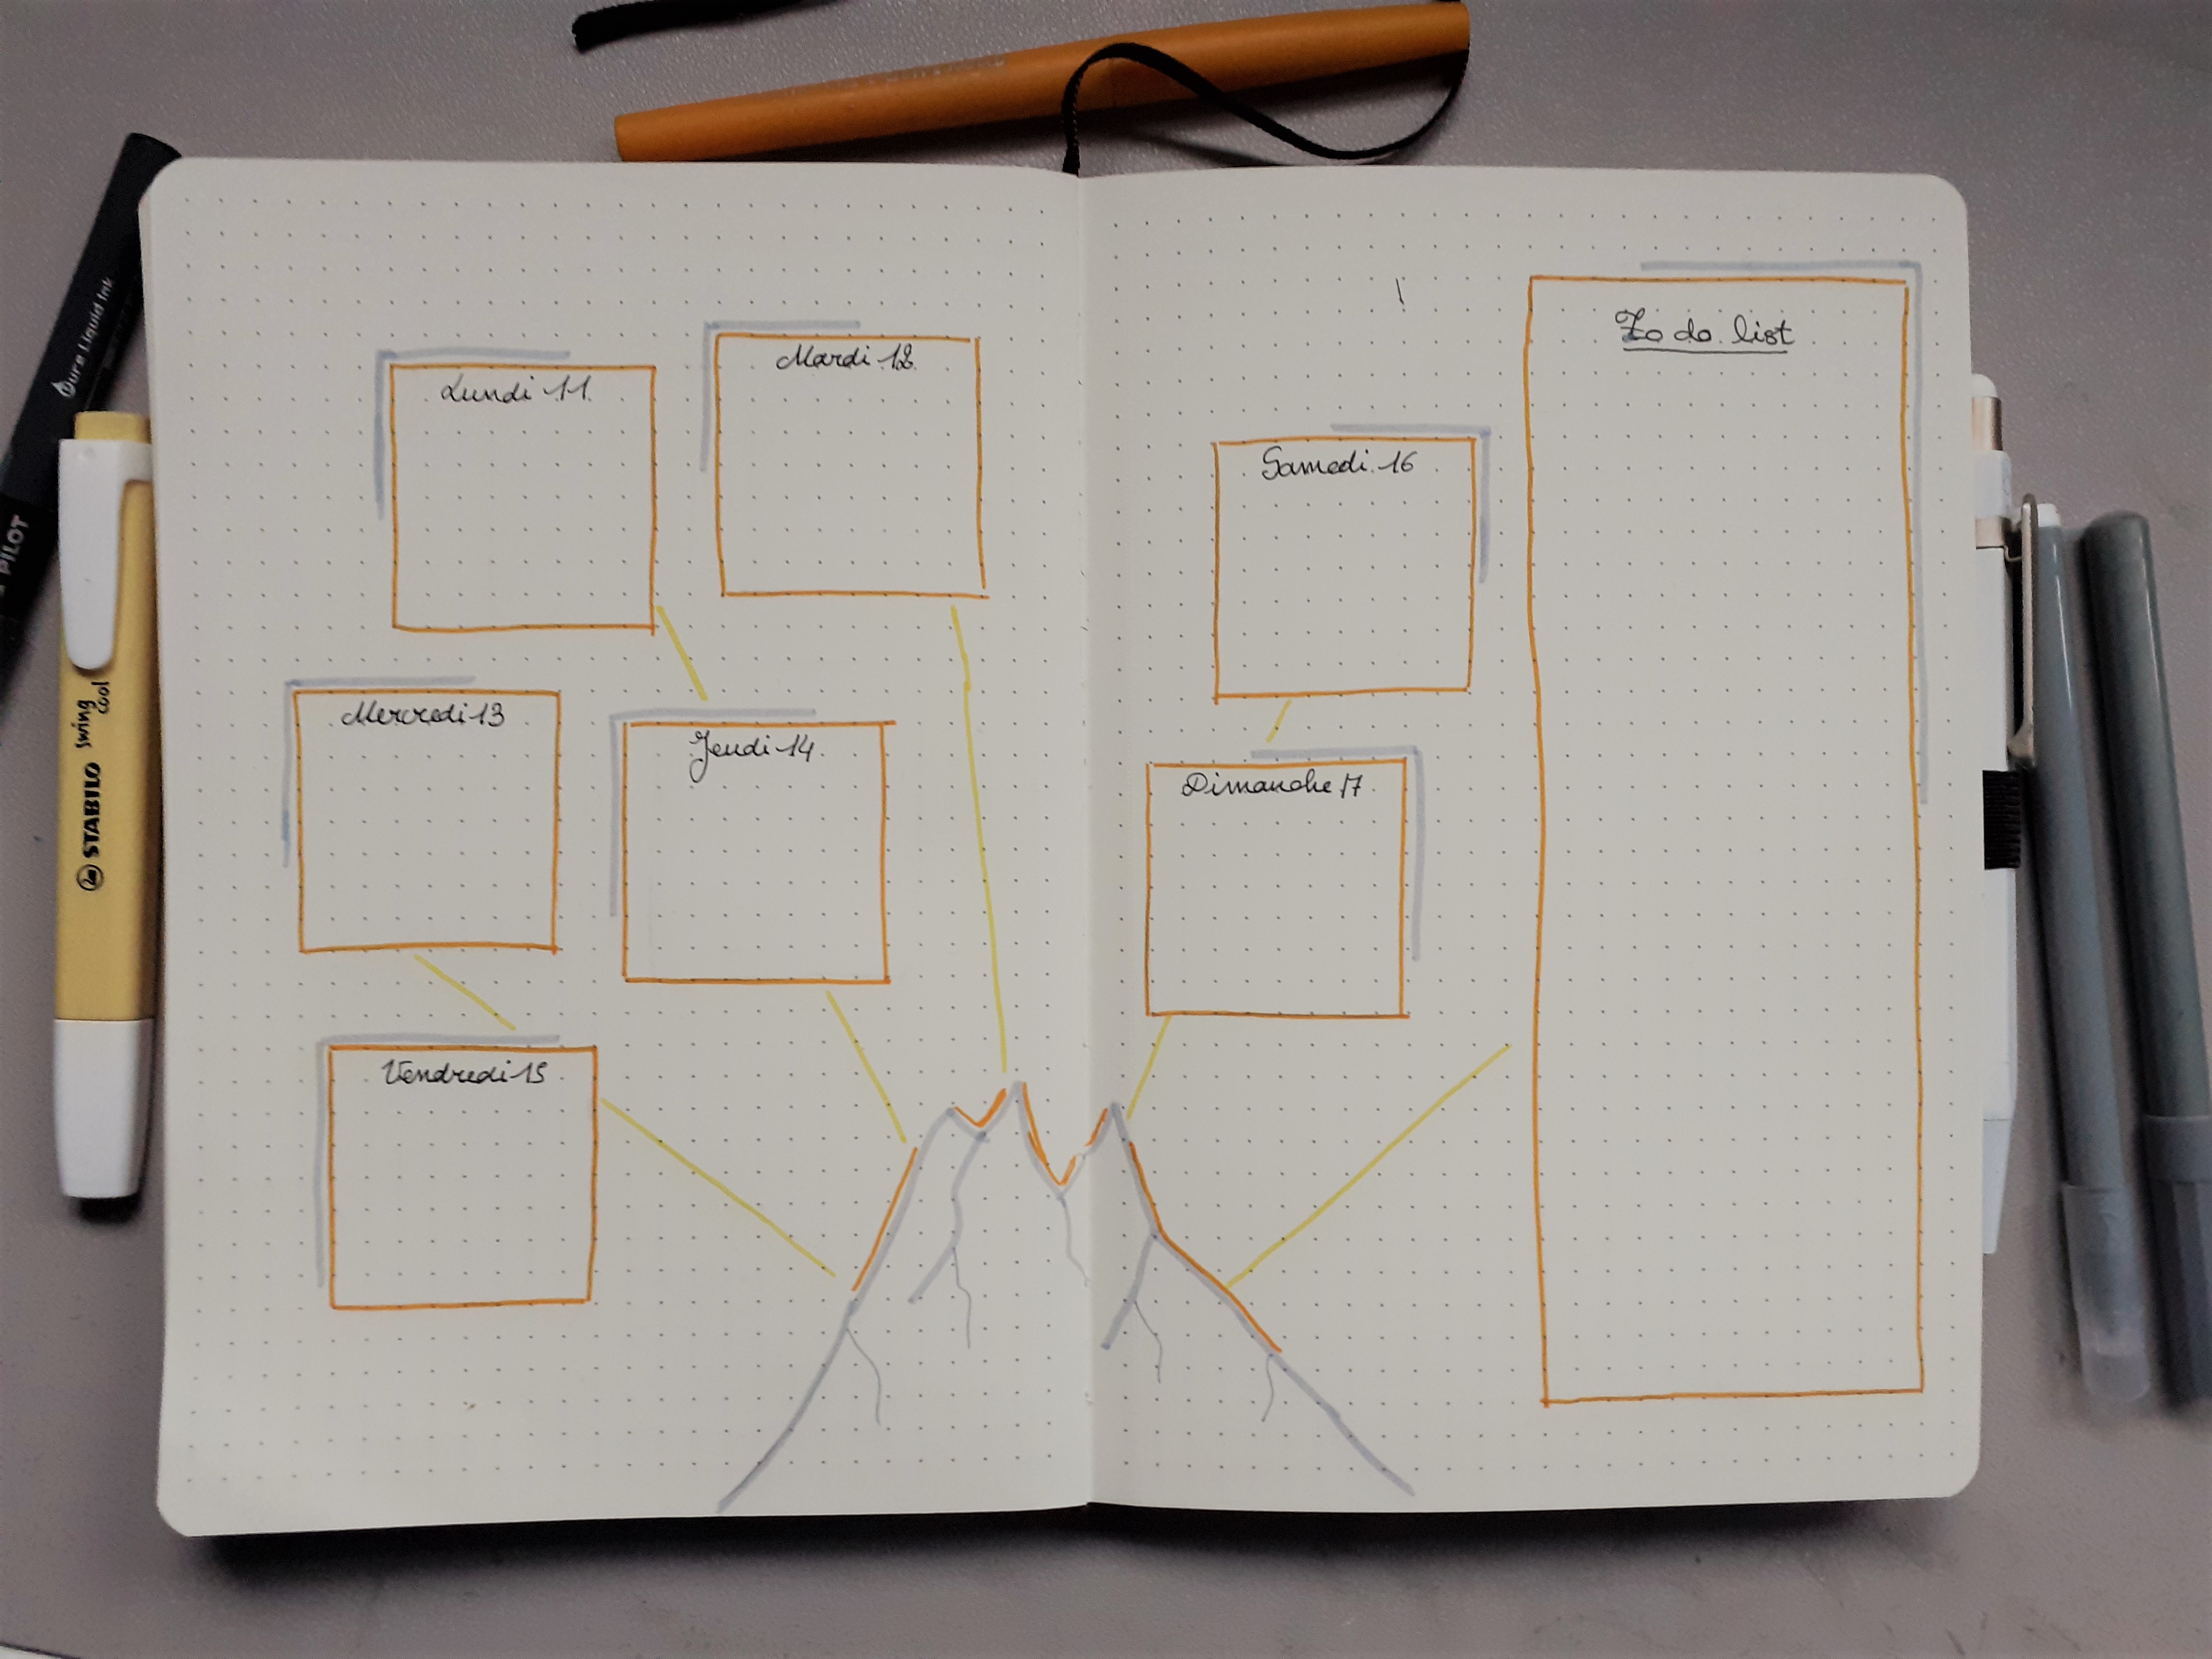 Lundi 11
Mardi 12
Mercredi 13
Jeudi 14
Vendredi 15
Samedi 16
Dimanche 17
To do list
Pure Liquid Ink
PILOT
STABILO swing cool